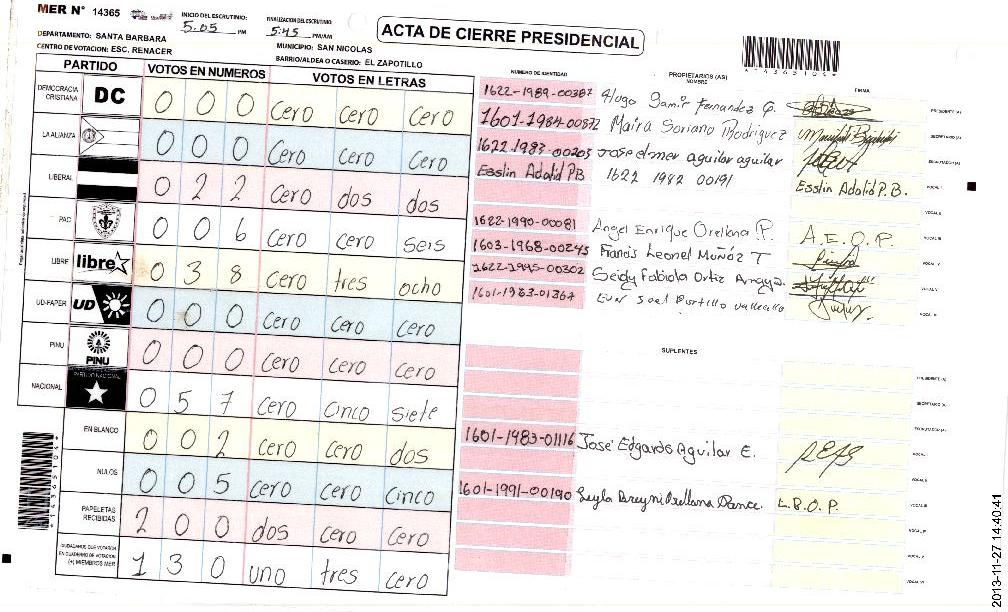 MER N° 14365
INICIO DEL ESCRUTINIO: 5.05 PM
FINALIZACION DEL ESCRUTINIO: 5:45 PM/AM
ACTA DE CIERRE PRESIDENCIAL
DEPARTAMENTO: SANTA BARBARA
MUNICIPIO: SAN NICOLAS
CENTRO DE VOTACION: ESC. RENACER
BARRIO/ALDEA O CASERIO: EL ZAPOTILLO
*1436510*
PARTIDO VOTOS EN NUMEROS VOTOS EN LETRAS
DEMOCRACIA CRISTIANA DC 0 0 0 cero cero cero
LA ALIANZA 0 0 0 cero cero cero
LIBERAL 0 2 2 cero dos dos
PAC 0 0 6 cero cero seis
LIBRE libre 0 3 8 cero tres ocho
UD-FAPER UD 0 0 0 cero cero cero
PINU PINU 0 0 0 cero cero cero
NACIONAL PARTIDO NACIONAL 0 5 7 cero cinco siete
EN BLANCO 0 0 2 cero cero dos
NULOS 0 0 5 cero cero cinco
PAPELETAS RECIBIDAS 2 0 0 dos cero cero
CIUDADANOS QUE VOTARON EN CUADERNO DE VOTACION (+) MIEMBROS MER 1 3 0 uno tres cero
NUMERO DE IDENTIDAD PROPIETARIOS (AS) NOMBRE FIRMA
1622-1989-00387 Hugo Samir Fernandez G. PRESIDENTE (A)
1601-1984-00872 Maira Soriano Rodriguez SECRETARIO (A)
1622-1983-00203 Jose elmer aguilar aguilar ESCRUTADOR (A)
Esslin Adolid P.B 1622 1982 00191 Esslin Adolid P.B. VOCAL I
VOCAL II
1622-1990-00081 Angel Enrique Orellana P. A.E.O.P. VOCAL III
1603-1968-00245 Francis Leonel Muñoz T VOCAL V
1622-1995-00302 Seidy Fabiola Ortiz VOCAL V
1601-1983-01367 Portillo VOCAL VI
SUPLENTES
PRESIDENTE (A)
SECRETARIO (A)
ESCRUTADOR (A)
1601-1983-01116 José Edgardo Aguilar E. VOCAL I
VOCAL II
1601-1991-00190 Leyla Orellana L.B.O.P. VOCAL III
VOCAL IV
VOCAL V
VOCAL VI
2013-11-27 14:40:41